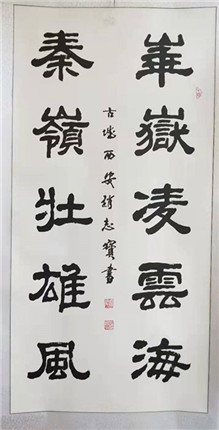 崋嶽凌雲海
秦嶺壯雄風
古城西安志寶書